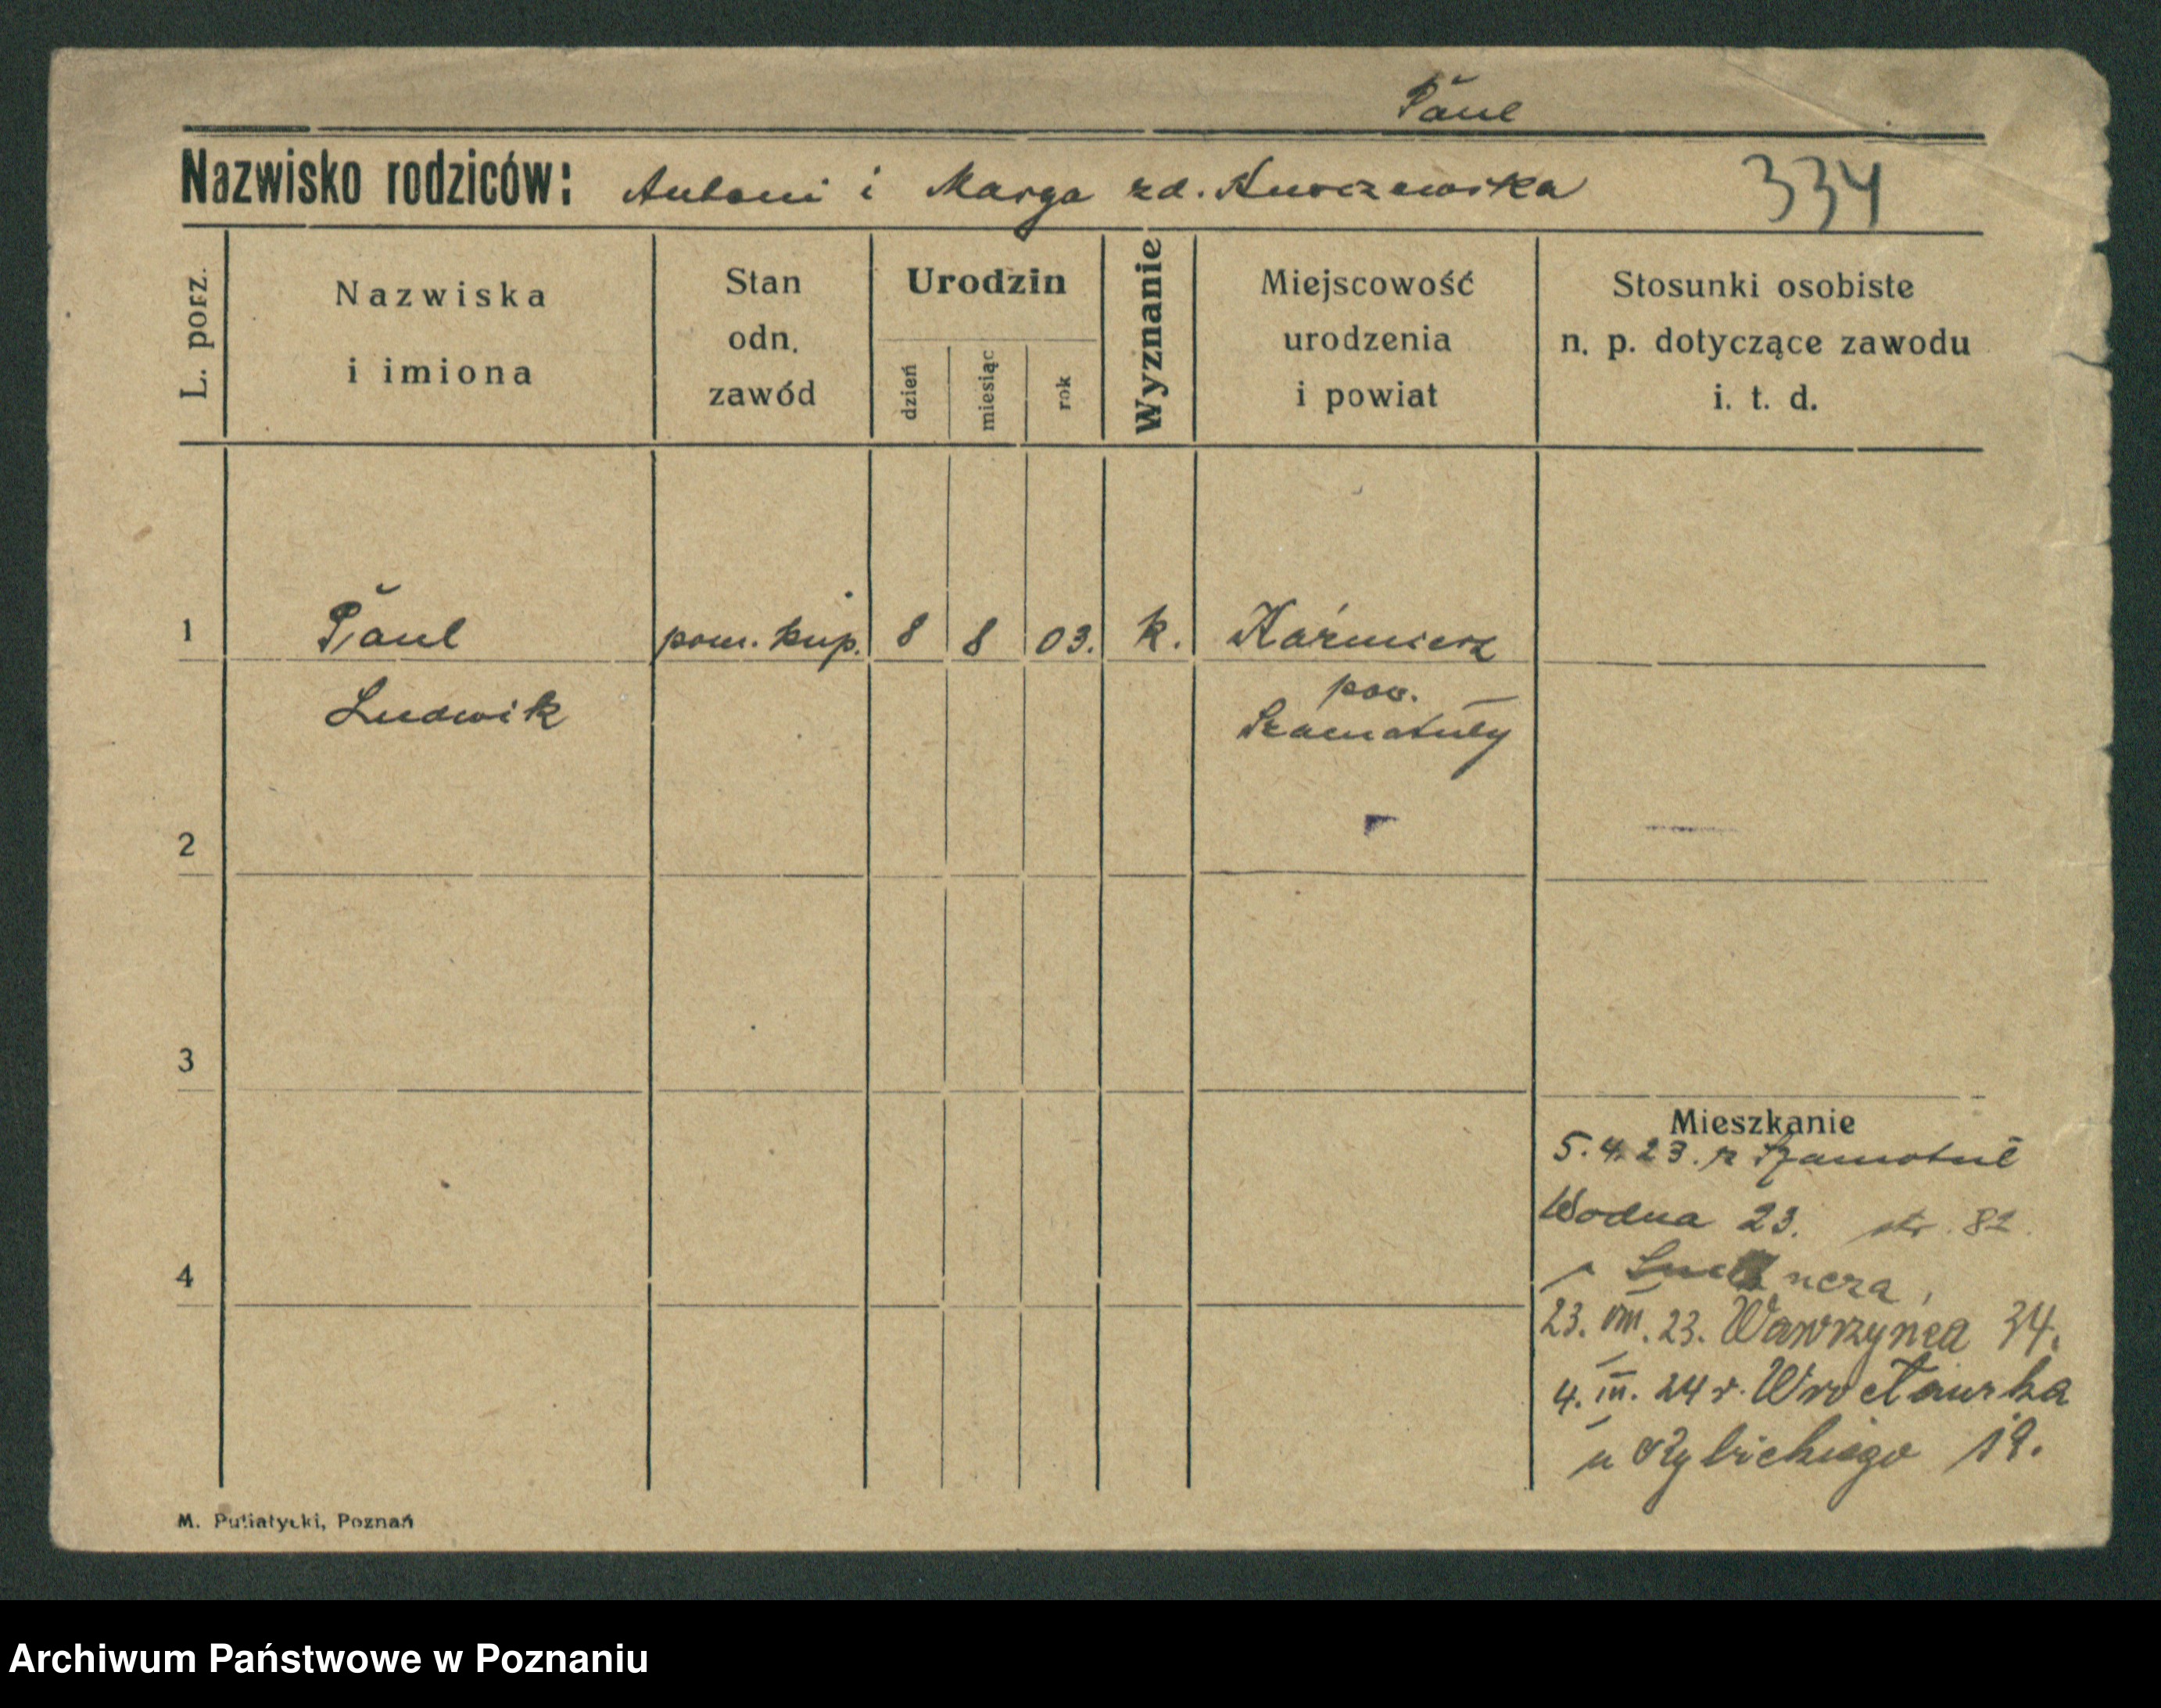 Paul
Nazwisko rodziców: Antoni i Marya zd. Kurczewska 334
L. porz.
Nazwiska
i imiona
Stan
odn.
zawód
Urodzin
dzień
miesiąc
rok
Wyznanie
Miejscowość
urodzenia
i powiat
Stosunki osobiste
n. p. dotyczące zawodu
i. t. d.
1 Paul pom. kup. 8 8 03. k. Kaźmierz
Ludwik
pow.
Szamotuły
2
3
4
Mieszkanie
5.4.23. z Szamotuł
Wodna 23. str. 82
23. VIII. 23. Wawrzyńca 34.
4. III. 24 r. Wrocławska
u Rybickiego 19.
M. Putiatycki, Poznań
Archiwum Państwowe w Poznaniu